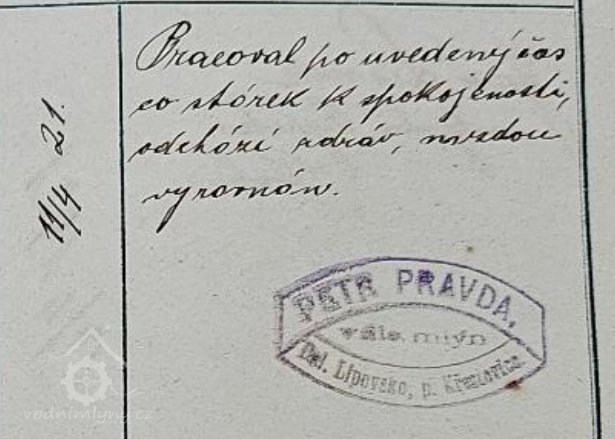 11/4 21.
Pracoval po uvedený čas
co stórek k spokojenosti,
odchází zdráv, mzdou
vyrovnán.
PETR PRAVDA,
válc. mlýn
Lipovsko, p. Křemovice.
vodnimlyny.cz